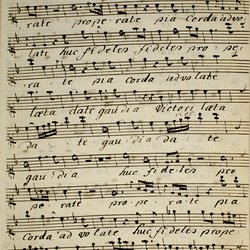 rate prope rate pia Corda advo
late huc fideles fideles prope
ra te pia corda advolate
læta date gaudia Victori læta
da te gau dia da te
gau dia huc fideles pro
pe rate pro pe rate pia
Corda ad vo late huc fideles prope